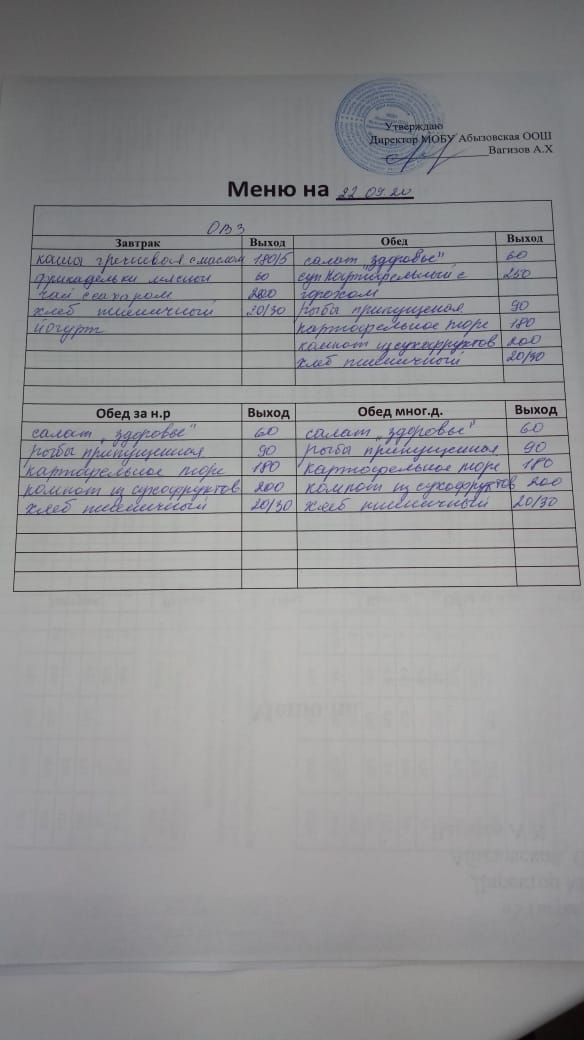 Утверждаю
Директор МОБУ Абызовская ООШ
Вагизов А.Х
Меню на 22.09.20
ОВЗ
Завтрак Выход Обед Выход
каша гречневая с маслом 180/5 салат "здоровье" 60
фрикадельки мясной 60 суп картофельный с 250
чай с сахаром 200 горохом
хлеб пшеничный 20/30 рыба припущеная 90
йогурт картофельное пюре 180
компот из сухофруктов 200
хлеб пшеничный 20/30
Обед за н.р Выход Обед мног.д. Выход
салат "здоровье" 60 салат "здоровье" 60
рыба припущенная 90 рыба припущенная 90
картофельное пюре 180 картофельное пюре 180
компот из сухофруктов 200 компот из сухофруктов 200
хлеб пшеничный 20/30 хлеб пшеничный 20/30